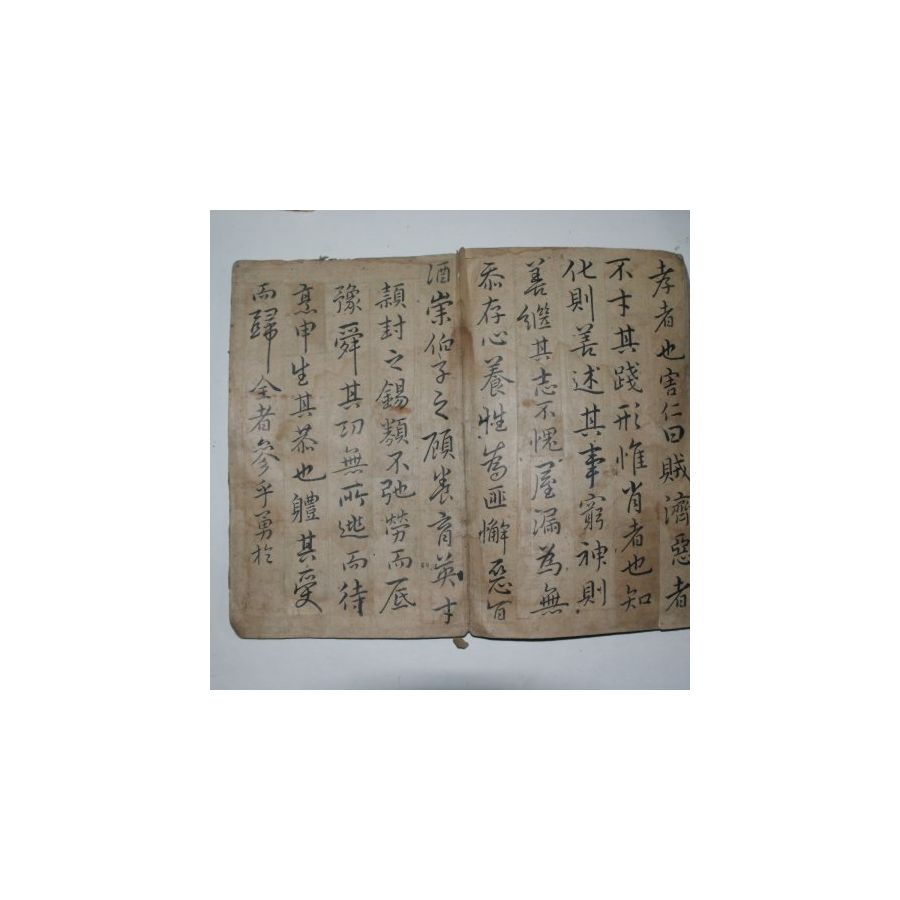 孝者也害仁曰賊濟惡者
不才其踐形惟肖者也知
化則善述其事窮神則
善繼其志不愧屋漏為無
忝存心養性為匪懈惡旨
酒崇伯子之顧養育英才
潁封之錫類不弛勞而底
豫舜其功無所逃而待
烹申生其恭也體其受
而歸全者參乎勇於